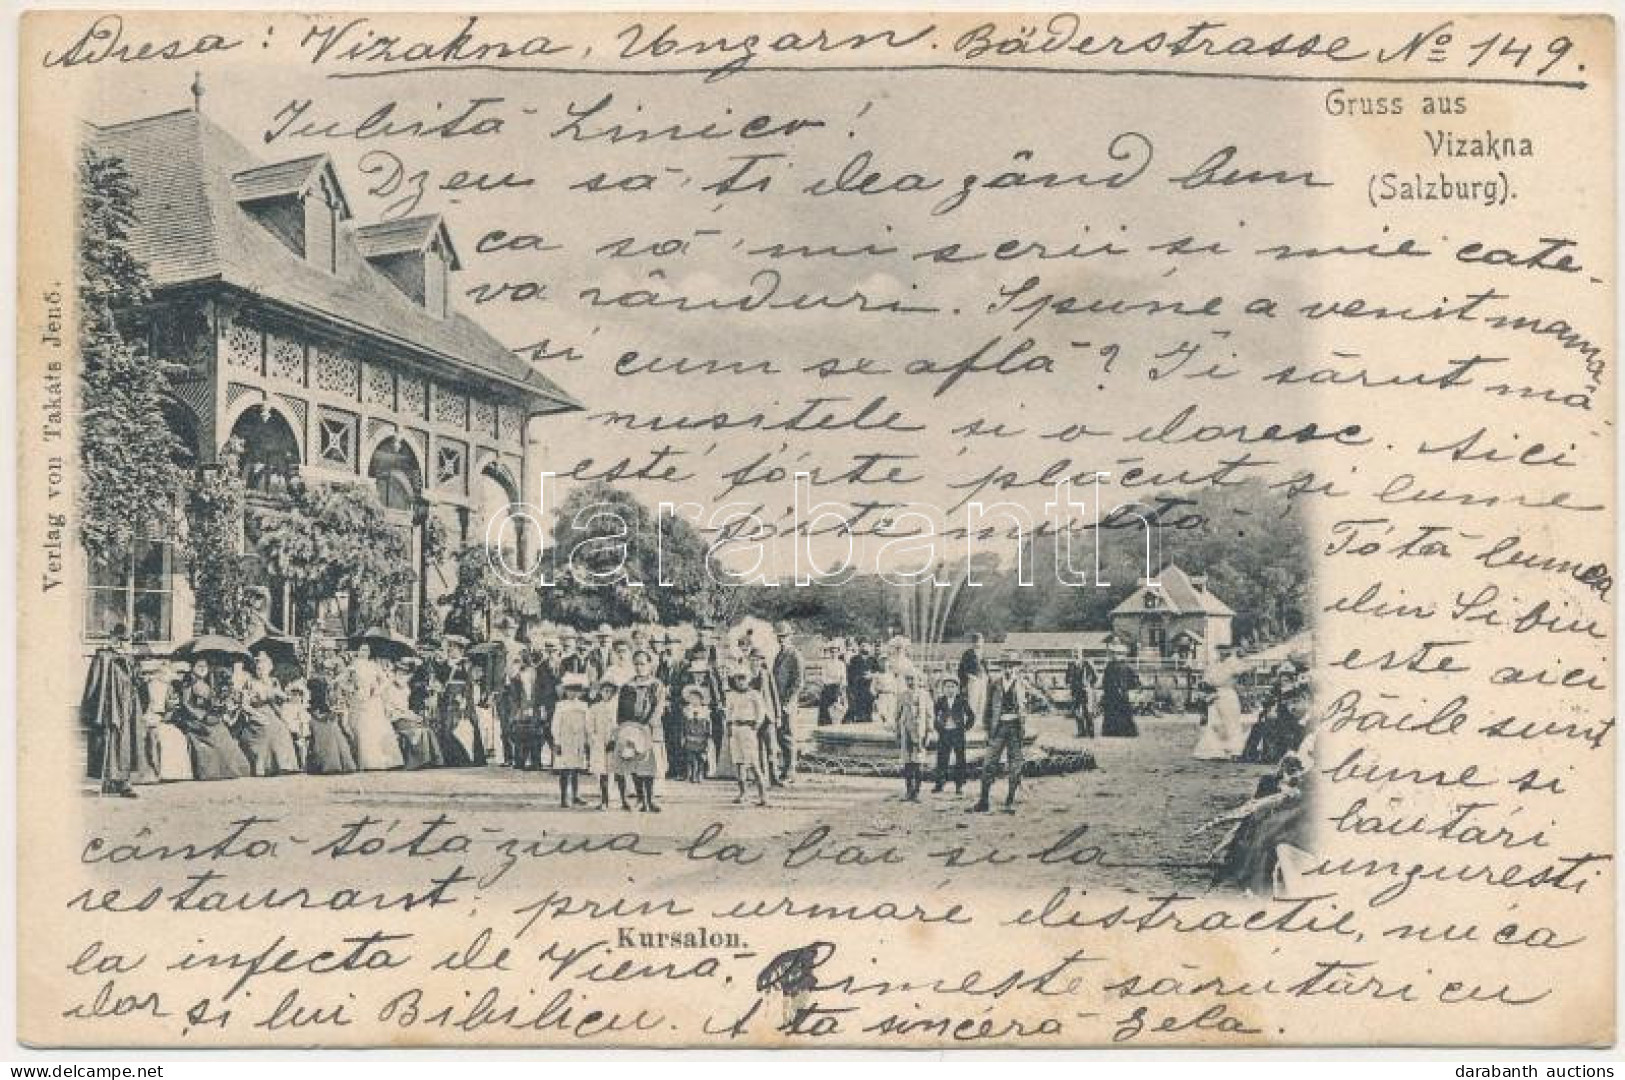 Adresa: Vizakna, Ungarn. Bäderstrasse No 149.
Gruss aus
Vizakna
(Salzburg).
Iubită Linico!
Dzeu să, ți dea gând bun
ca să, mi scrii si mie cate-
va rânduri. Spune a venit mama
si cum se află? Ĭi sărut mâ
nusitele si o doresc. Aici
este fórte plăcut și lume
fórte multă
Tótă lumea
din Sibiu
este aici
Băile sunt
bune si
lăutări
unguresti
cântă tótă ziua la băi si la
restaurant, prin urmare distractie, nu ca
la infecta de Vienă. Primeste sărutări cu
dor și lui Bibilicu. A ta sinceră Zela.
Kursalon.
Verlag von Takáts Jenő.
darabanth
darabanth auctions